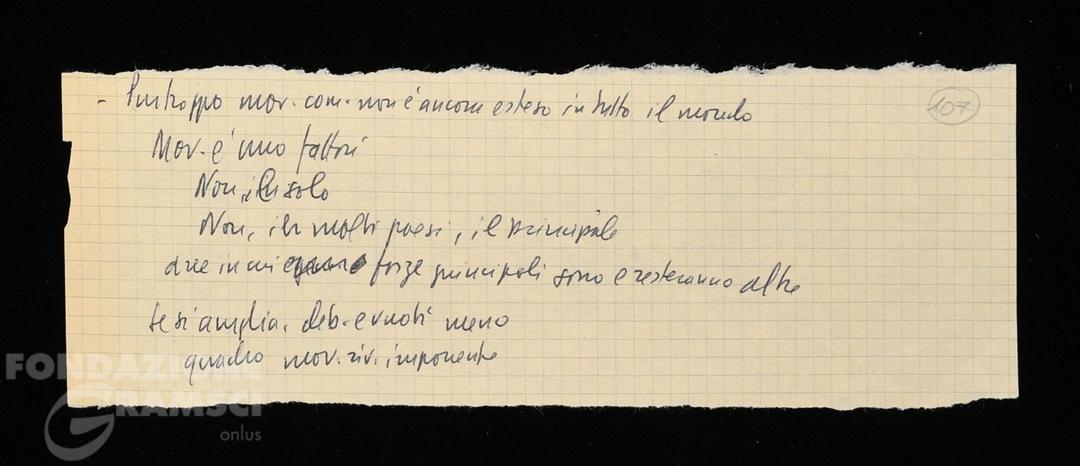 - Purtroppo mov. com. non è ancora esteso in tutto il mondo
107
Mov. è uno fattori
Non, il solo
Non, in molti paesi, il principale
aree in cui forze principali sono e resteranno altre
Se si amplia. deb. e vuoti meno
quadro mov. riv. imponente
FONDAZIONE
GRAMSCI
onlus